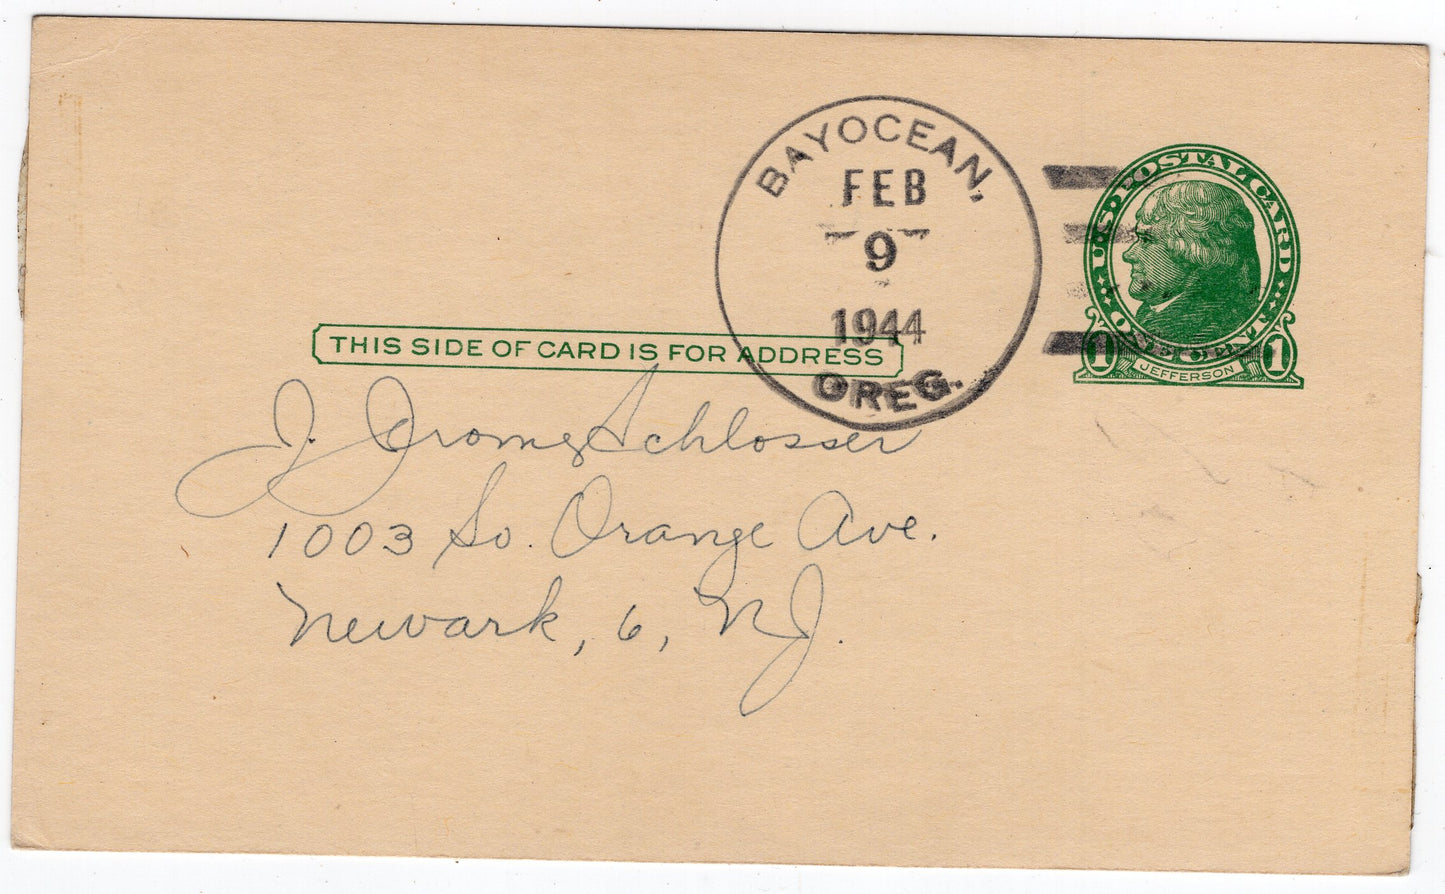 BAYOCEAN,
FEB
9
1944
OREG.
U.S. POSTAL CARD
ONE CENT
1 1
JEFFERSON
THIS SIDE OF CARD IS FOR ADDRESS
J. Jerome Schlosser
1003 So. Orange Ave.
Newark, 6, NJ.